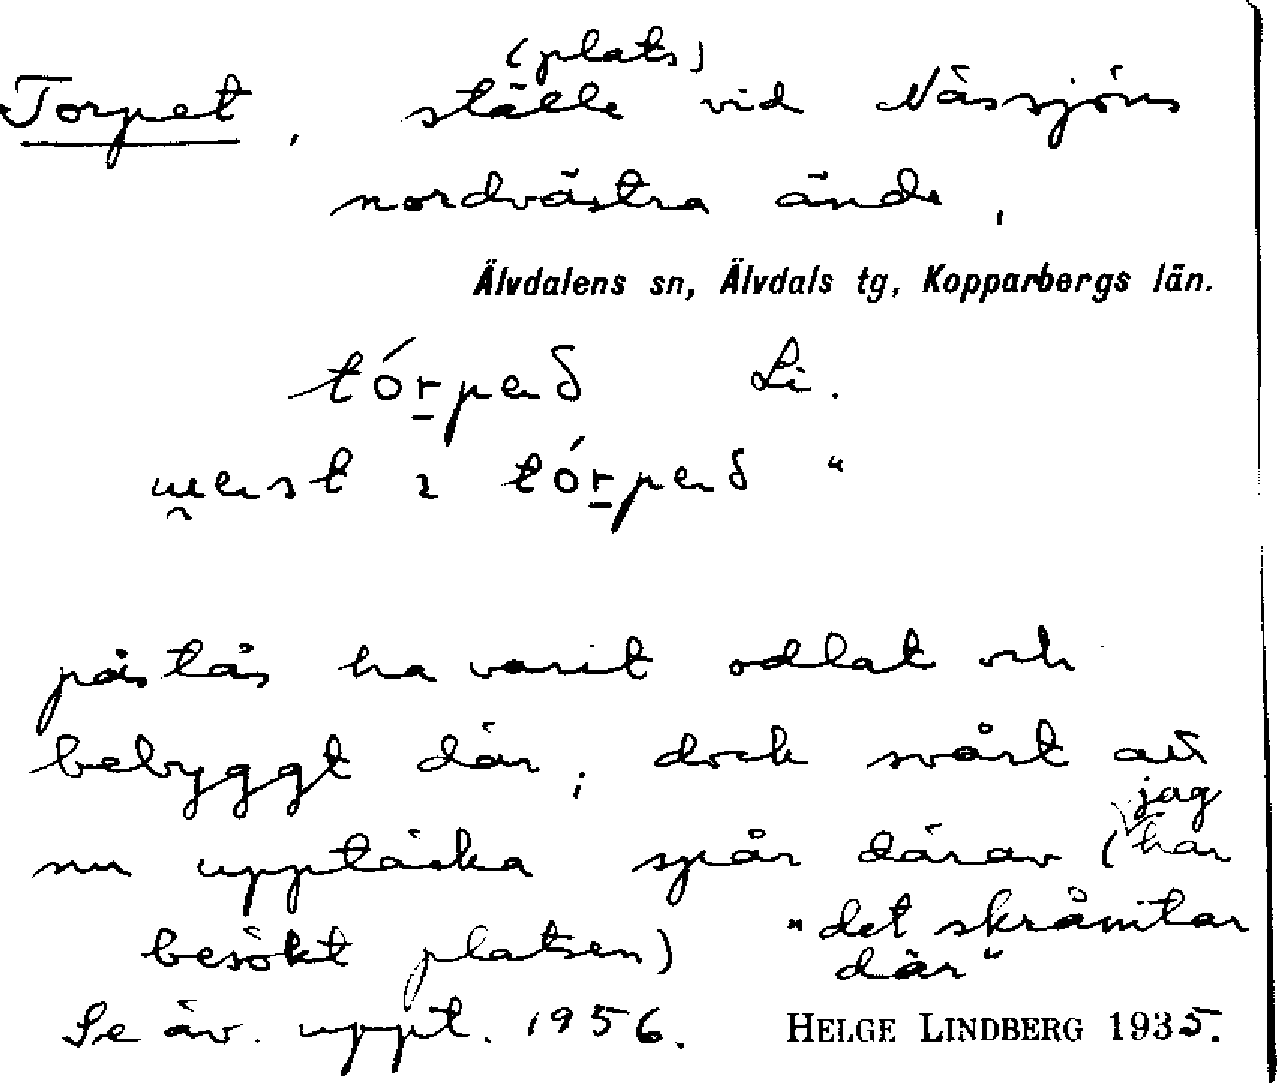 (plats)
Torpet, ställe vid Nässjöns
nordvästra ände,
Älvdalens sn, Älvdals tg, Kopparbergs län.
tórpeð Li.
mest ı tórpeð "
påstås ha varit odlat och
bebyggt där; dock svårt att
jag
nu upptäcka spår därav (har
besökt platsen) "det skrämtar
där"
Se äv. uppt. 1956. HELGE LINDBERG 1935.